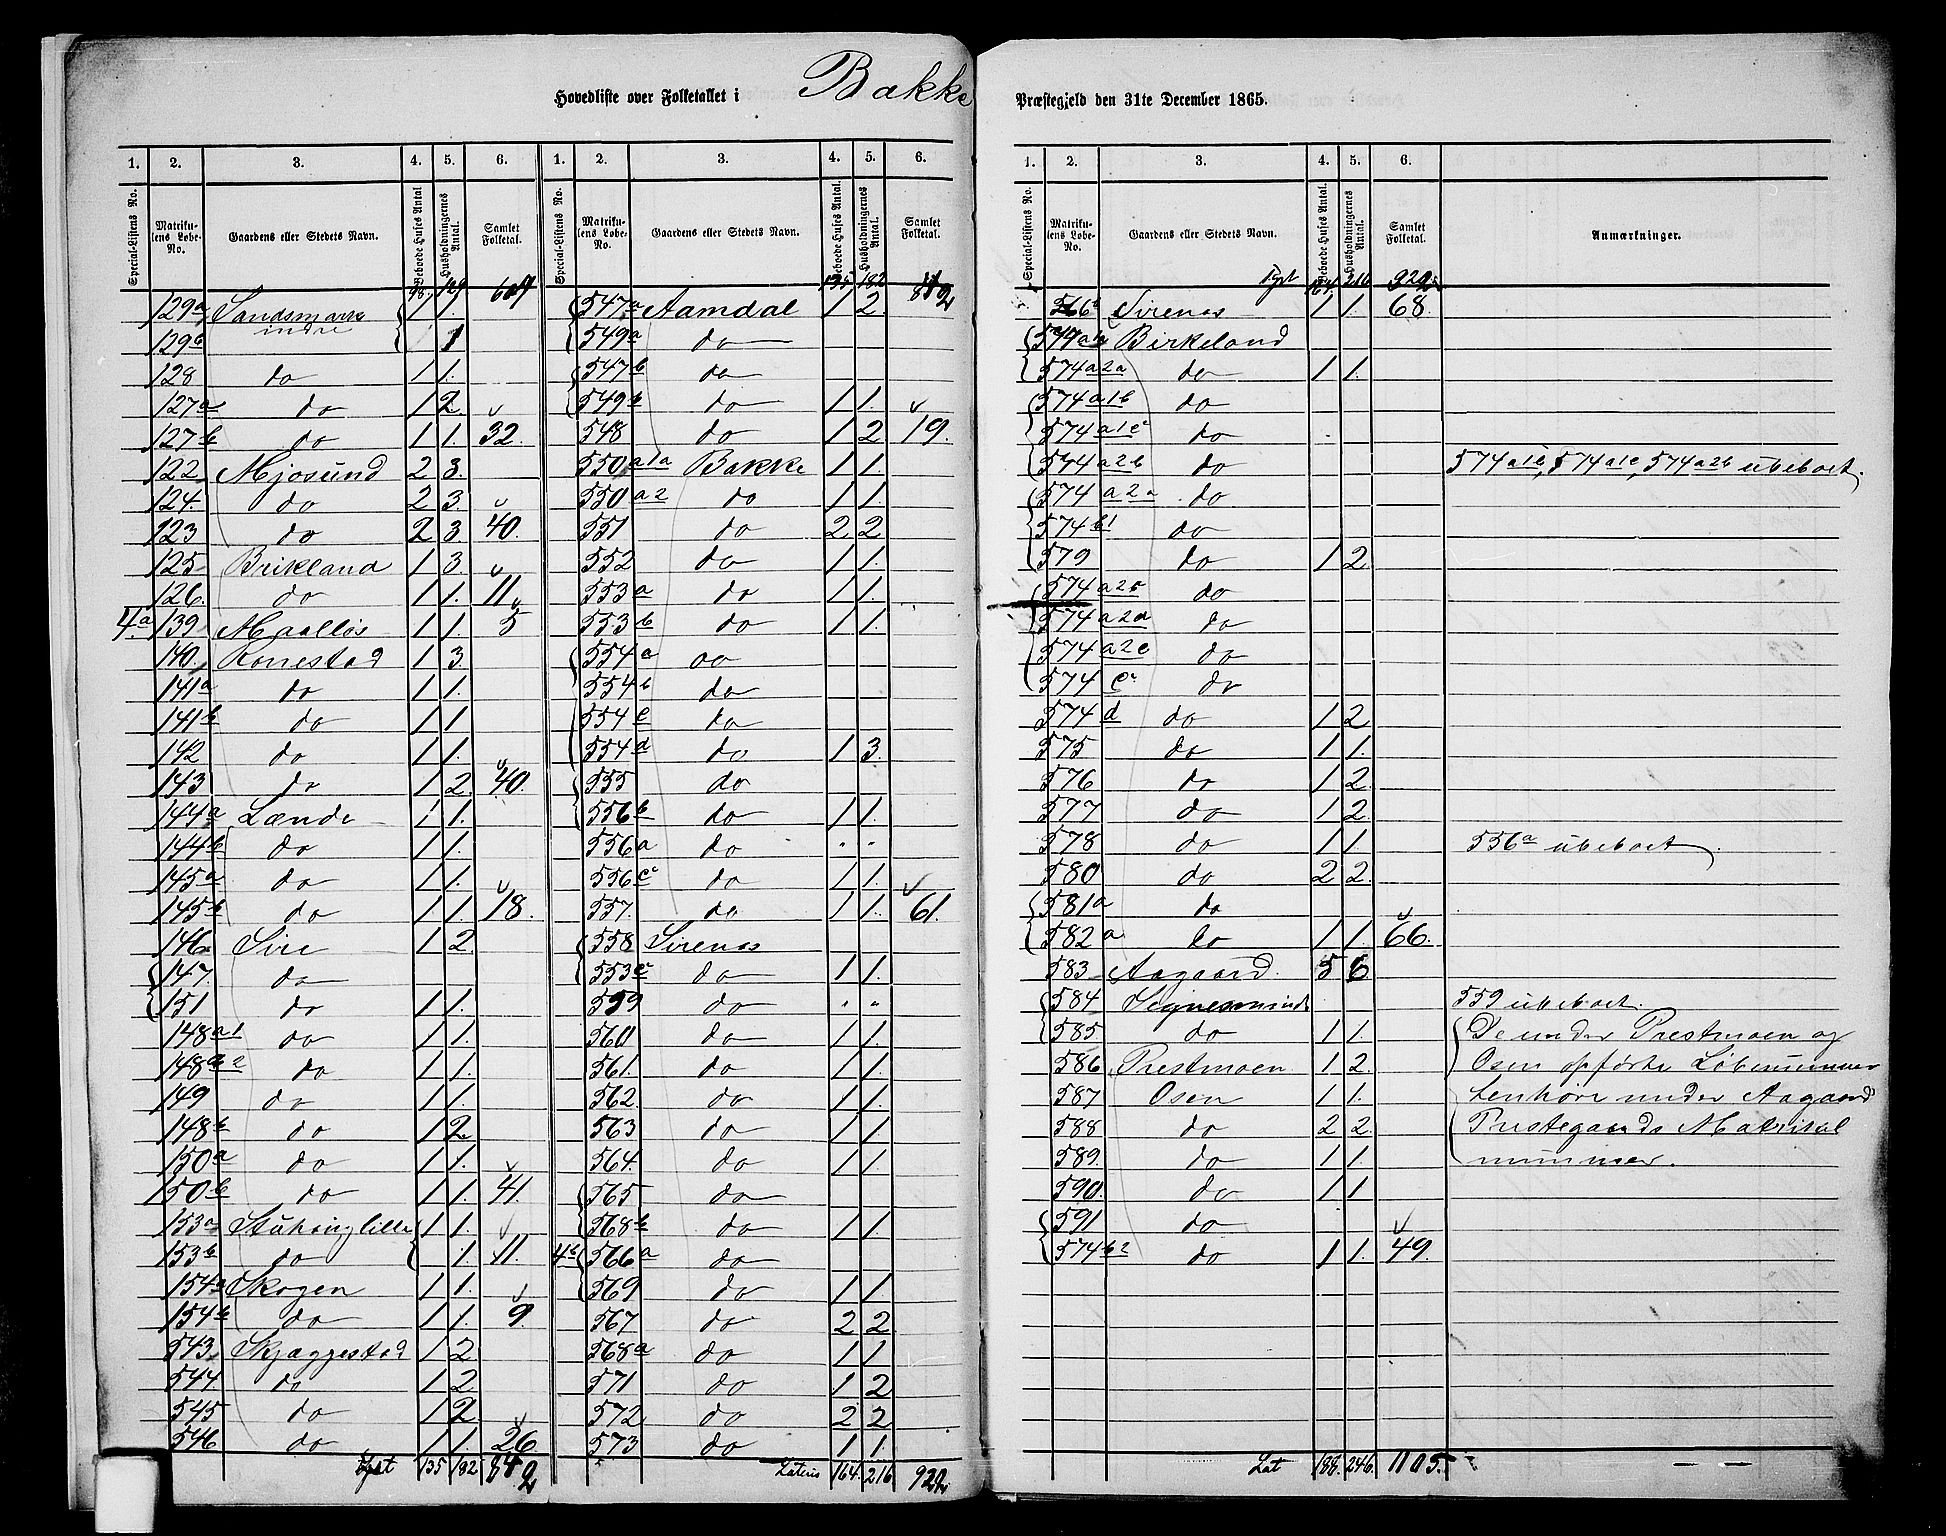 Hovedliste over Folketallet i Bakke Præstegjeld den 31te December 1865.
1. 2. 3. 4. 5. 6. 1. 2. 3. 4. 5. 6.
Special-Listens No. Matrikulens Løbe-No. Gaardens eller Stedets Navn. Beboede Huses Antal Husholdningernes Antal. Samlet Folketal. Special-Listens No. Matrikulens Løbe-No. Gaardens eller Stedets Navn. Beboede Huses Antal. Husholdningernes Antal. Samlet Folketal.
98. 129 609
129a Sandsmark indre 1 1.
129b 1
128 do 1 1.
127a do 1 2.
127b do 1 1. 32.
122 Mjosund 2 3.
124. do 2 3.
123 do 2 3 40.
125 Birkland 1 3.
126. do 1 1. 11.
4.a 139 Maalløs 1 1. 5
140. Ronestad 1 3.
141a do 1 1.
141b do 1 1
142 do 1 1.
143 do 1 2. 40.
144a Lænde 1 1.
144b do 1 1.
145a do 1 1.
145b do 1 1. 18.
146 Sire 1 2.
147. do
151 do 1 1.
148a1 do 1 1.
148a2 do 1 1.
149 do 1 1.
148b do 1 2.
150a do 1 1.
150b do 1 1. 41.
153a Stuhaug lille 1 1.
153b do 1. 11.
154a Skogen 1 1.
154b do 1 1. 9
543 Skjæggestad 1 2
544. do 1 2
545 do 1 2
546 do 1 1. 26.
135 182 842
135 182 842
547a Aamdal 1 2.
549a do
547b do
549b do 1 1.
548 do 1 2 19.
550a1a Bakke 1 1.
550a2 do 1 1.
551 do 2 2
552 do 1 1.
553a do 1 1.
553b do 1 1.
554a do
554b do
554c do
554d do 1 3.
555 do
556b do 1 1.
556a do " "
556c do 1 1.
557. do 1 1. 61.
558 Sirenes
553c do 1 1.
559 do " "
560 do 1 1.
561. do 1 1.
562. do 1 1.
563 do 1 1.
564. do 1 1.
565 do
568b do 1 1.
4b 566a do
569 do 1 1
567 do 2 2.
568a do 1 1
571 do 1 2
572 do 2 2
573 do 1 1.
Lateris 164. 216 922
1. 2. 3. 4. 5. 6.
Special-Listens No. Matrikulens Løbe-No. Gaardens eller Stedets Navn. Beboede Huses Antal. Husholdningernes Antal. Samlet Folketal. Anmærkninger.
164. 216 922
566b Sirenes 1 1. 68.
574a1a Birkeland
574a2a do 1 1.
574a1b do
574a1c do
574a2b do 574a1b, 574a1c, 574a2b ubeboet.
574a2a do
574b1 do
579 do 1 2
574a2c do
574a2d do
574a2e do
574c do
574d do 1 2
575 do 1 1.
576 do 1 2
577 do 1 2
578 do 1 1. 556a ubeboet.
580 do 2 2.
581a do
582a do 1 1. 66.
583 Aagaard 5 6
584 559 ubeboet.
585. do 1 1. De under Prestmoen og
586 Prestmoen 1 2 Osen opførte Løbenummer
587 Osen 1 1. henhøre under Aagaard
588 do 2 2. Prestegaards Matrikul
589. do 1 1. nummer.
590. do 1 1
591 do
574b2 do 1 1. 49.
Lat 188. 246. 1105.